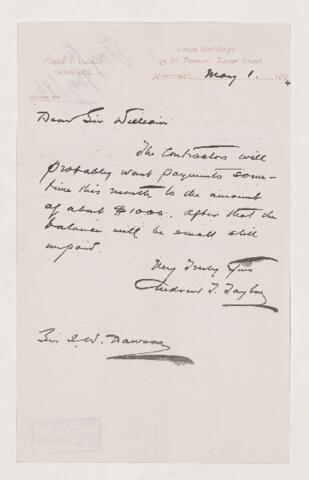 Union Buildings,
Architect.
Montreal, May 1. 189
Dear Sir William
The Contractors will
probably want payments some-
time this month to the amount
of about $1000. After that the
balance will be small still
unpaid.
Very Truly Yours
Andrew T. Taylor
Sir J. W. Dawson